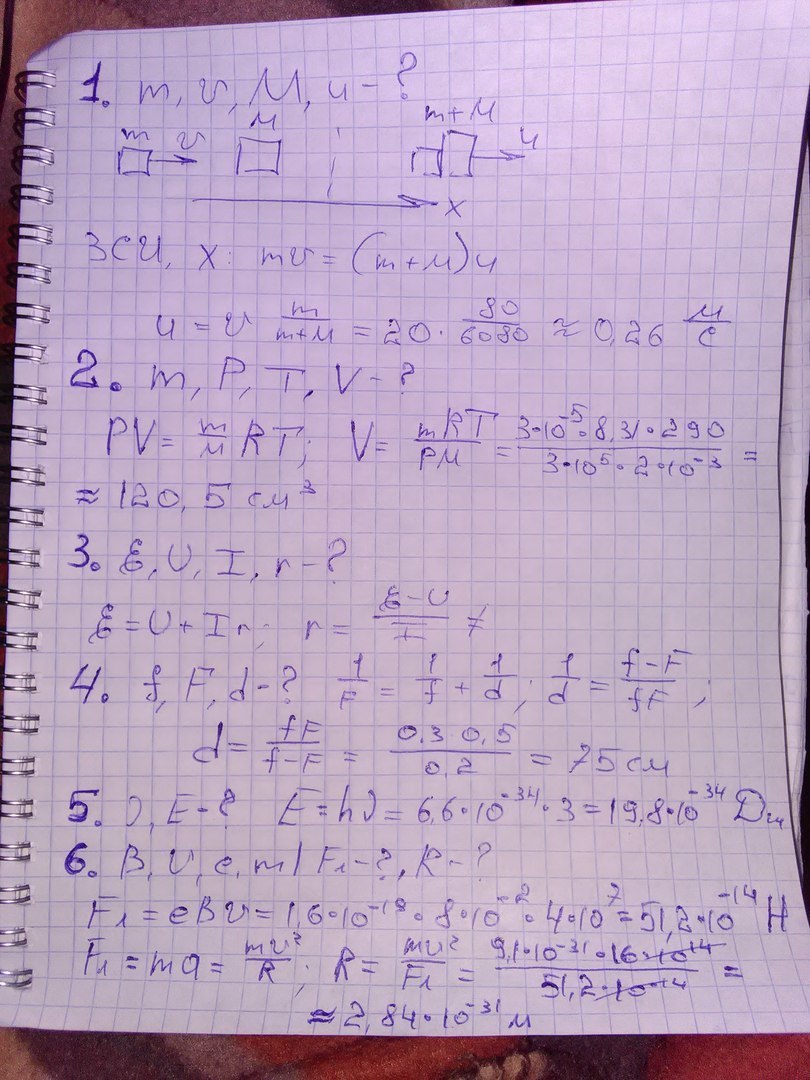 1. m, v, M, u - ?
m v M m+M u
x
ЗСИ, x: mv = (m+M)u
u = v m/(m+M) = 20 · 80/6080 ≈ 0,26 м/с
2. m, P, T, V - ?
PV = m/M RT; V = mRT/PM = 3·10⁻⁵·8,31·290/3·10⁵·2·10⁻³ =
≈ 120,5 см³
3. Ɛ, U, I, r - ?
Ɛ = U + Ir; r = (Ɛ-U)/I
4. f, F, d - ? 1/F = 1/f + 1/d; 1/d = (f-F)/fF;
d = fF/(f-F) = 0,3 0,5/0,2 = 75 см
5. ν, E - ? E = hν = 6,6·10⁻³⁴·3 = 19,8·10⁻³⁴ Дж
6. B, V, e, m | Fл - ?, R - ?
Fл = eBv = 1,6·10⁻¹⁹·8·10⁻²·4·10⁷ = 51,2·10⁻¹⁴ Н
Fл = ma = mv²/R; R = mv²/Fл = 9,1·10⁻³¹·16·10¹⁴/51,2·10⁻¹⁴ =
≈ 2,84·10⁻³¹ м